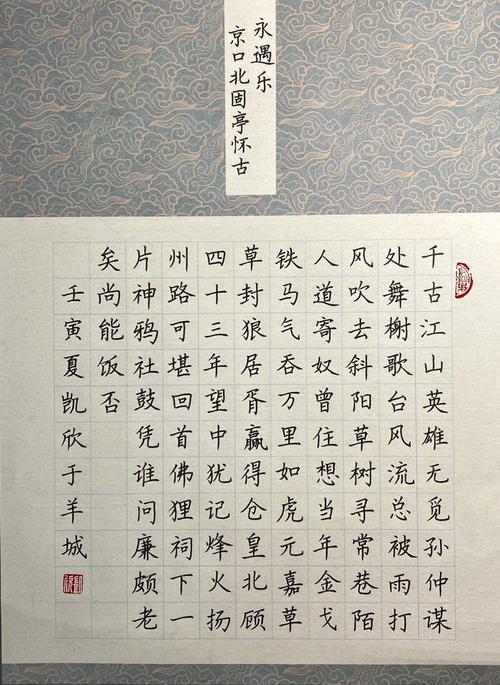 永遇乐
京口北固亭怀古
千古江山英雄无觅孙仲谋
处舞榭歌台风流总被雨打
风吹去斜阳草树寻常巷陌
人道寄奴曾住想当年金戈
铁马气吞万里如虎元嘉草
草封狼居胥赢得仓皇北顾
四十三年望中犹记烽火扬
州路可堪回首佛狸祠下一
片神鸦社鼓凭谁问廉颇老
矣尚能饭否
壬寅夏凯欣于羊城